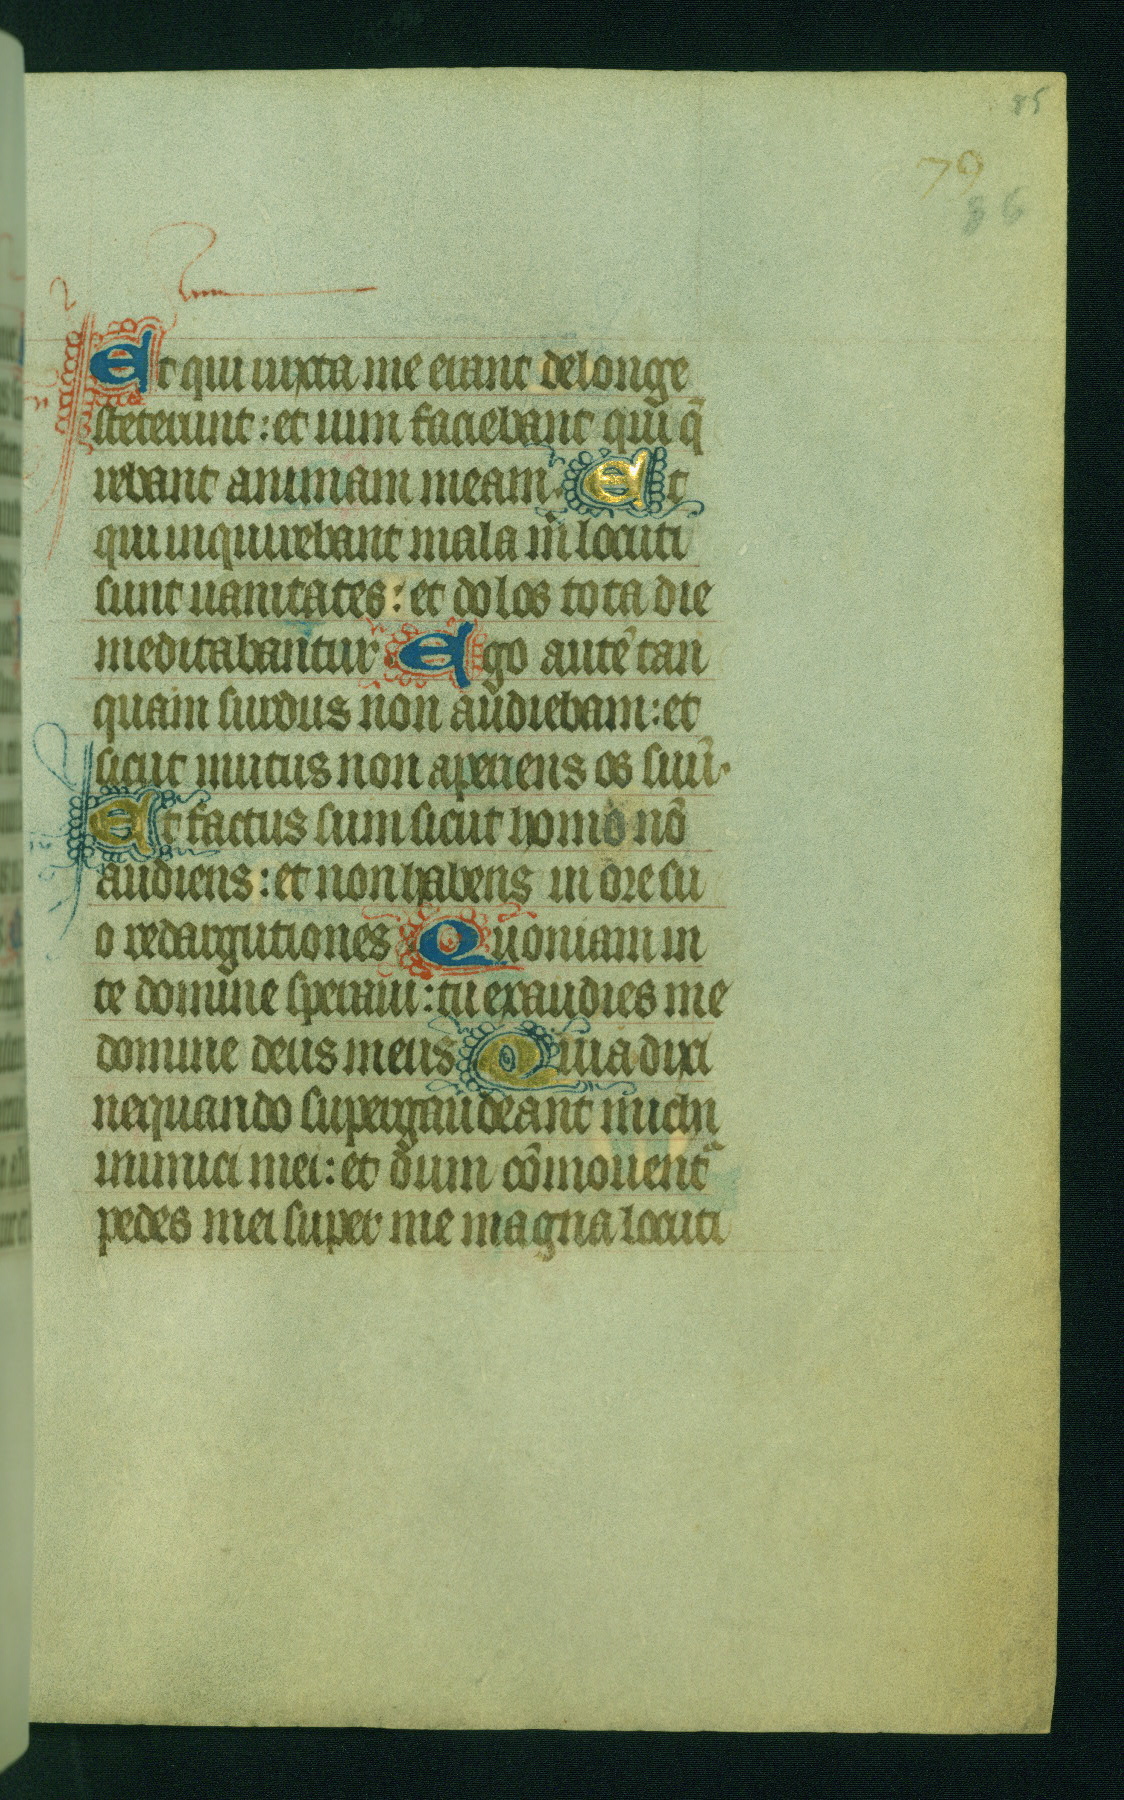 85
79
86
Et qui iuxta me erant de longe
steterunt: et uim faciebant qui q̄
rebant animam meam. Et
qui inquirebant mala m̄ locuti
sunt uanitates: et dolos tota die
meditabantur. Ego autē tan
quam surdus non audiebam: et
sicut mutus non aperiens os suū.
Et factus sum sicut homo nō
audiens: et non habens in ore su
o redargutiones. Quoniam in
te domine speraui: tu exaudies me
domine deus meus. Quia dixi
nequando supergaudeant michi
inimici mei: et dum cōmouent̄
pedes mei super me magna locuti